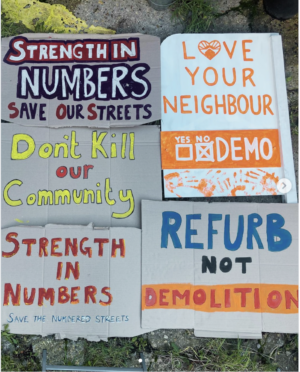 STRENGTH IN
NUMBERS
SAVE OUR STREETS
LOVE
YOUR
NEIGHBOUR
YES NO
DEMO
Dont Kill
our
Community
STRENGTH
IN
NUMBERS
SAVE THE NUMBERED STREETS
REFURB
NOT
DEMOLITION